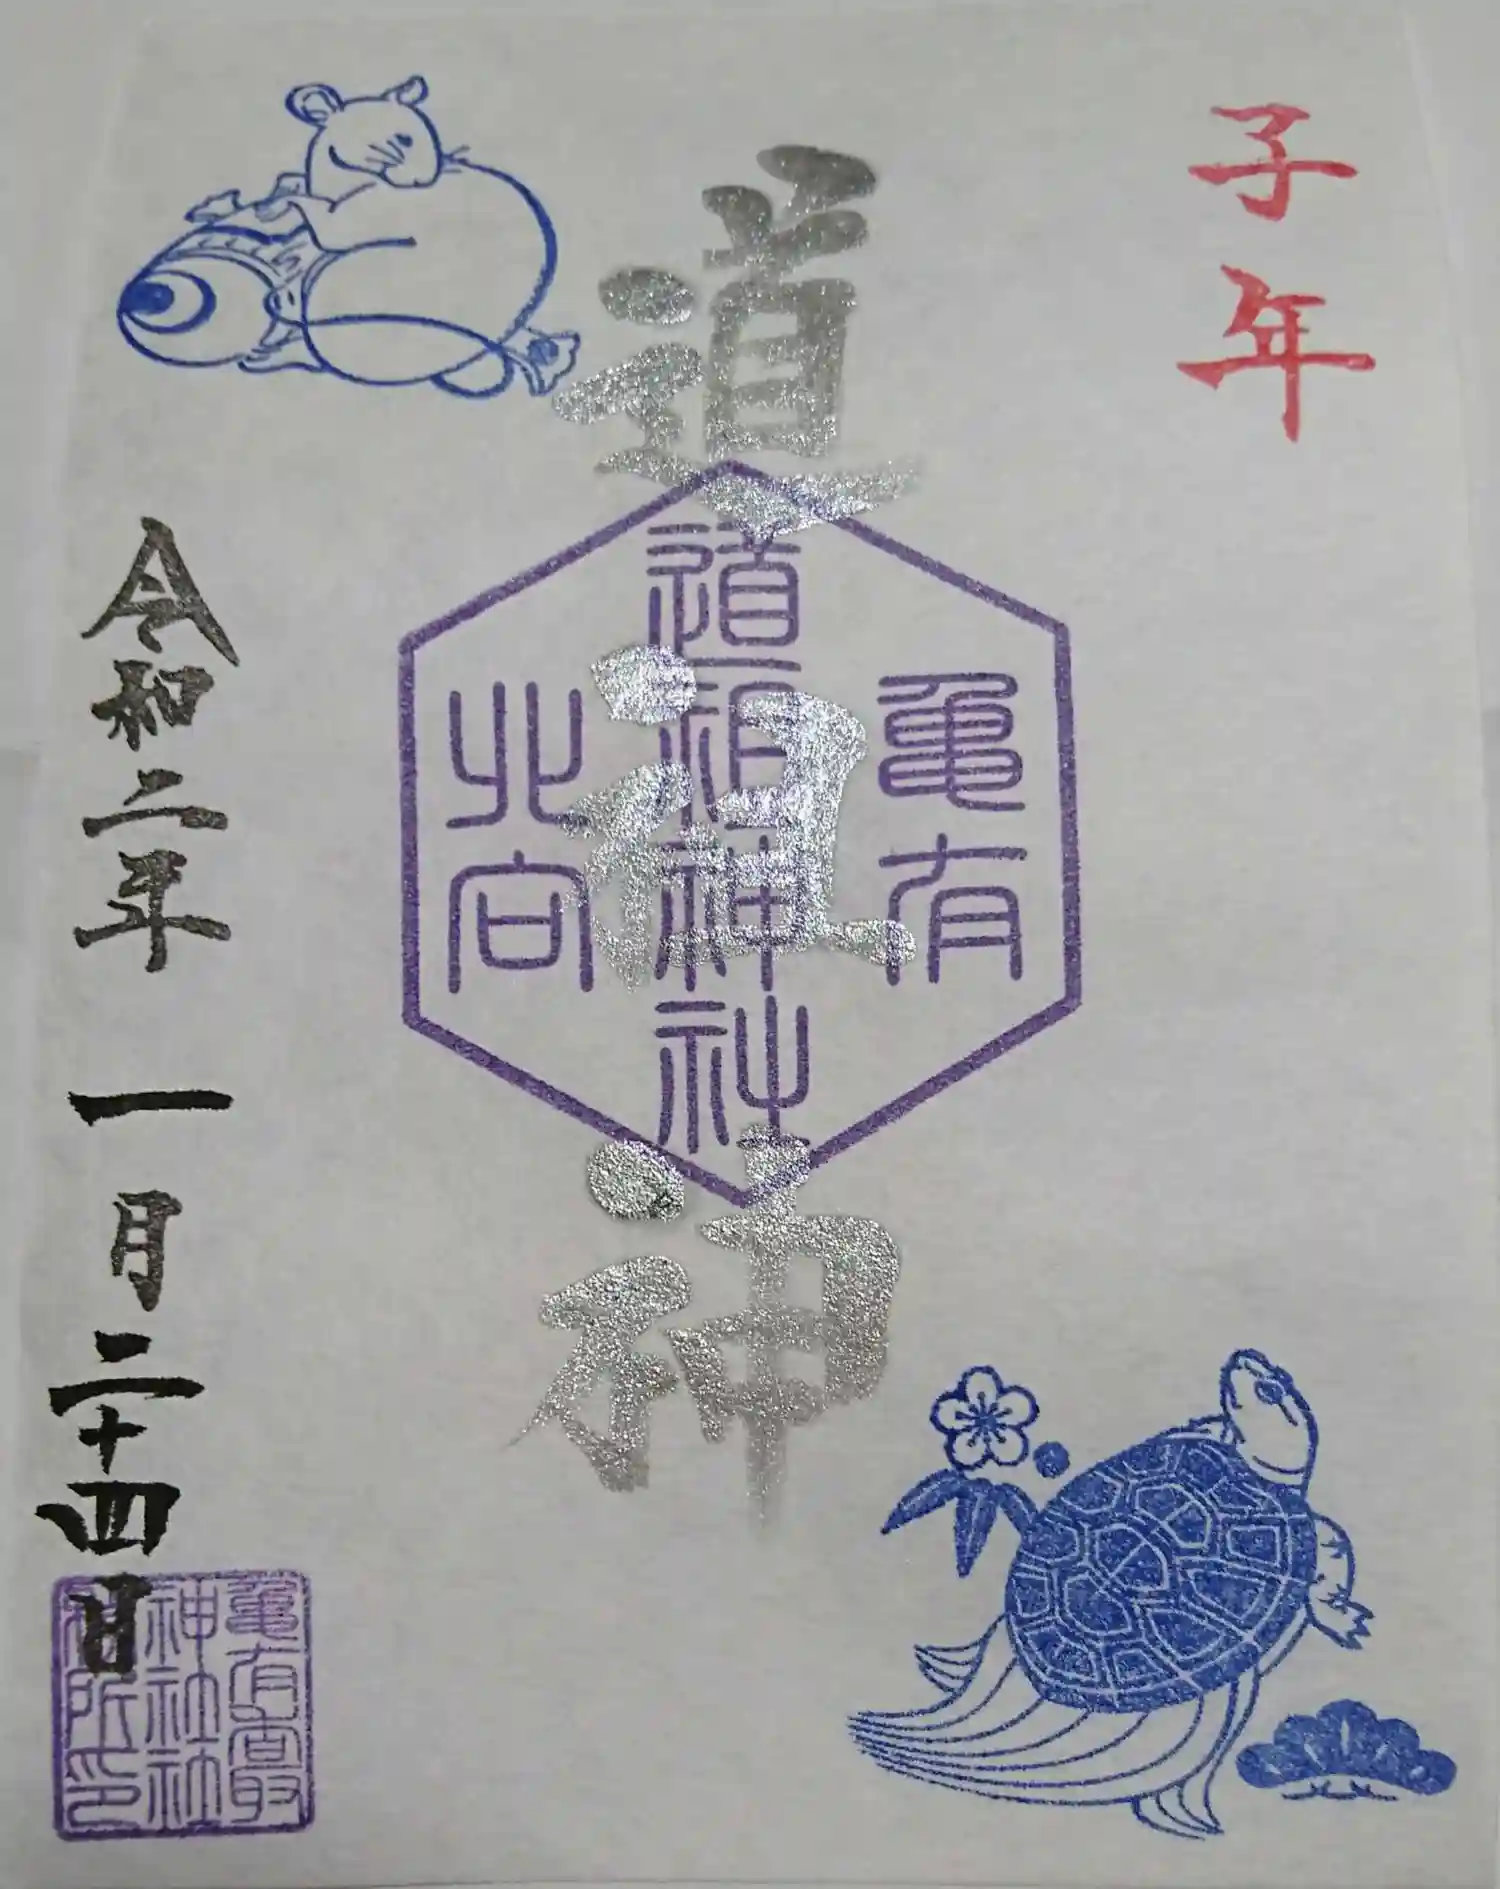 子年
道祖神
亀有
道祖神神社
北向
令和二年 一月二十四日
亀有香取
神社社
務所印